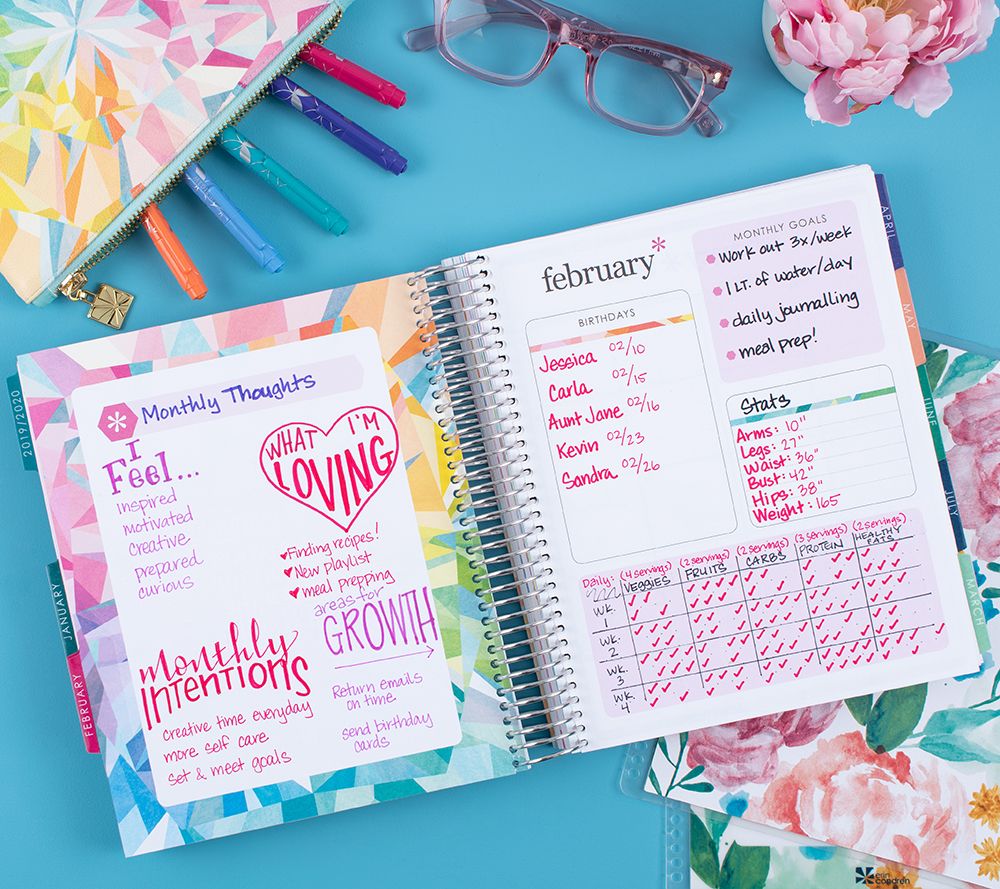 2019/2020
JANUARY
FEBRUARY
Monthly Thoughts
I
Feel...
inspired
motivated
creative
prepared
curious
WHAT I'M
LOVING
Finding recipes!
New playlist
meal prepping
monthly
INTENTIONS
creative time everyday
more self care
set & meet goals
areas for
GROWTH
Return emails
on time
send birthday
cards
february*
BIRTHDAYS
Jessica 02/10
Carla 02/15
Aunt Jane 02/16
Kevin 02/23
Sandra 02/26
MONTHLY GOALS
Work out 3x/week
1 LT. of water/day
daily journalling
meal prep!
Stats
Arms: 10"
Legs: 27"
Waist: 36"
Bust: 42"
Hips: 38"
Weight: 165
Daily: (4 servings) (2 servings) (2 servings) (3 servings) (2 servings)
VEGGIES FRUITS CARBS PROTEIN HEALTHY
FATS
WK.
1
WK.
2
WK.
3
WK.
4
APRIL
MAY
JUNE
JULY
MARCH
erin
condren